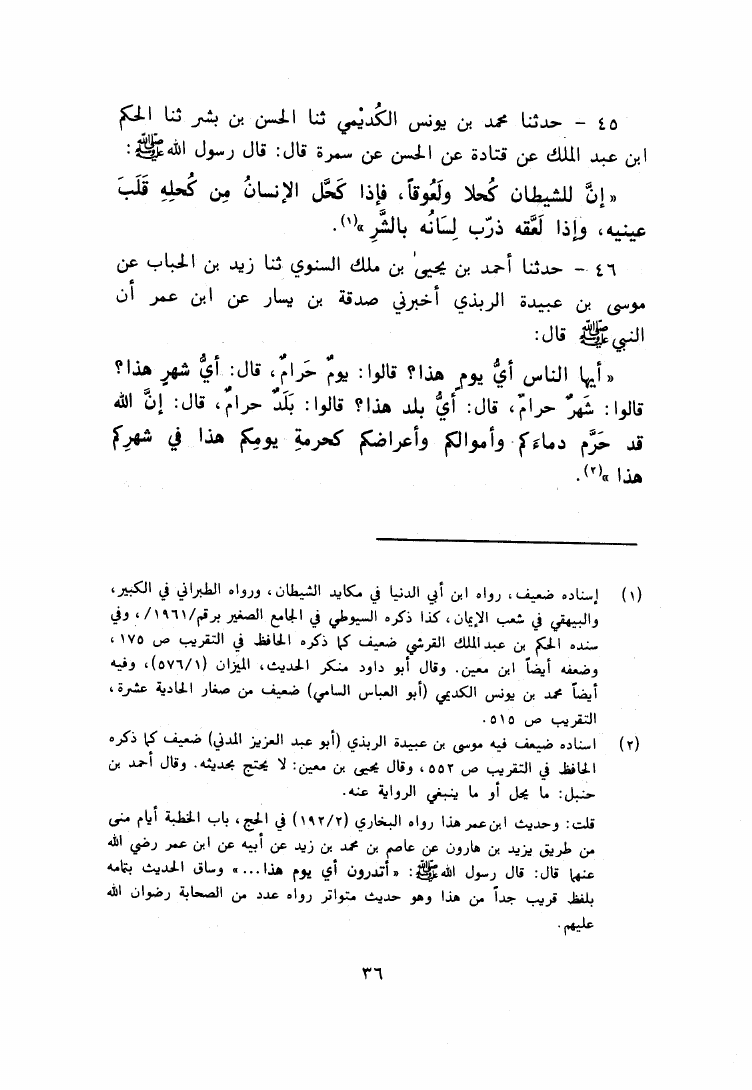 ٤٥ - حدثنا محمد بن يونس الكُديْمي ثنا الحسن بن بشر ثنا الحكم
ابن عبد الملك عن قتادة عن الحسن عن سمرة قال: قال رسول الله ﷺ:
«إنَّ للشيطان كُحلا ولَعُوقاً، فإذا كَحَّل الإنسانُ مِن كُحلِهِ قَلَبَ
عينيه، وإذا لَعَّقه ذرّب لِسَانُه بالشَّرِ»(١).
٤٦ - حدثنا أحمد بن يحيىٰ بن ملك السنوي ثنا زيد بن الحباب عن
موسى بن عبيدة الربذي أخبرني صدقة بن يسار عن ابن عمر أن
النبي ﷺ قال:
«أيها الناس أيُّ يومٍ هذا؟ قالوا: يومٌ حَرامٌ، قال: أيُّ شهرٍ هذا؟
قالوا: شَهرٌ حرامٌ، قال: أيُّ بلد هذا؟ قالوا: بَلَدٌ حرامٌ، قال: إنَّ الله
قد حَرَّم دماءَكم وأموالكم وأعراضكم كحرمةِ يومِكم هذا في شهرِكم
هذا»(٢).
(١) إسناده ضعيف، رواه ابن أبي الدنيا في مكايد الشيطان، ورواه الطبراني في الكبير،
والبيهقي في شعب الإيمان، كذا ذكره السيوطي في الجامع الصغير برقم/١٩٦١/، وفي
سنده الحكم بن عبدالملك القرشي ضعيف كما ذكره الحافظ في التقريب ص ١٧٥،
وضعفه أيضاً ابن معين. وقال أبو داود منكر الحديث، الميزان (٥٧٦/١)، وفيه
أيضاً محمد بن يونس الكديمي (أبو العباس السامي) ضعيف من صغار الحادية عشرة،
التقريب ص ٥١٥.
(٢) اسناده ضيعف فيه موسى بن عبيدة الربذي (أبو عبد العزيز المدني) ضعيف كما ذكره
الحافظ في التقريب ص ٥٥٢، وقال يحيى بن معين: لا يحتج بحديثه. وقال أحمد بن
حنبل: ما يحل أو ما ينبغي الرواية عنه.
قلت: وحديث ابن عمر هذا رواه البخاري (١٩٢/٢) في الحج، باب الخطبة أيام منى
من طريق يزيد بن هارون عن عاصم بن محمد بن زيد عن أبيه عن ابن عمر رضي الله
عنهما قال: قال رسول الله ﷺ: «أتدرون أي يوم هذا...» وساق الحديث بتمامه
بلفظ قريب جداً من هذا وهو حديث متواتر رواه عدد من الصحابة رضوان الله
عليهم.
٣٦